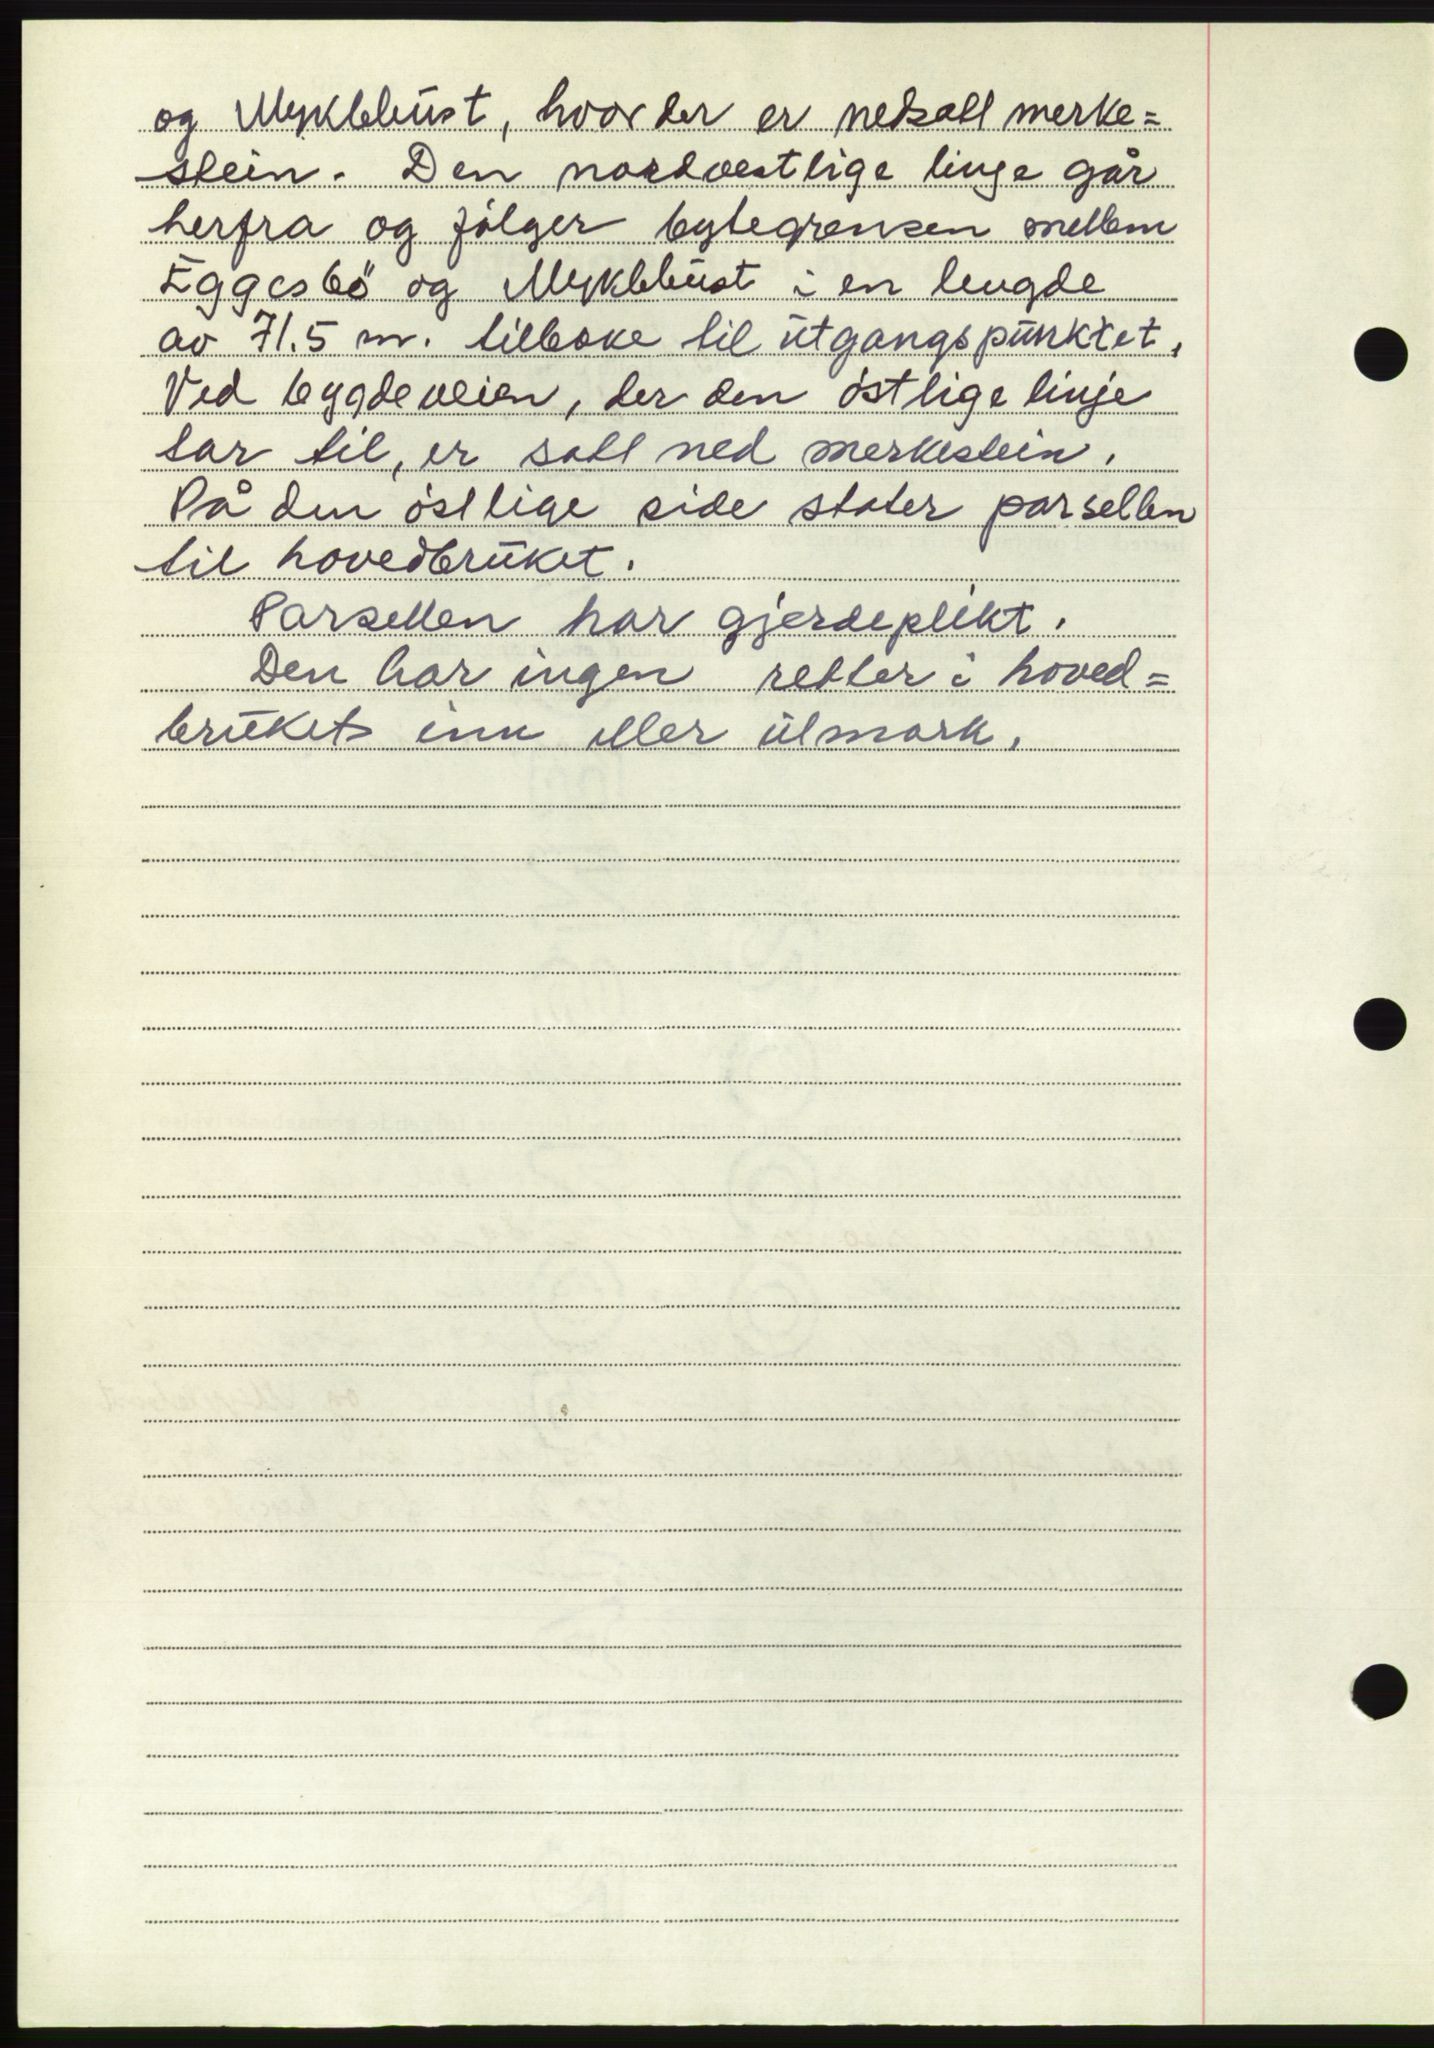 og Myklebust, hvor der er nedsatt merke=
stein. Den nordvestlige linje går
herfra og følger bytegrensen mellem
Eggesbö og Myklebust i en lengde
av 71.5 m. tilbake til utgangspunktet.
Ved bygdeveien, der den östlige linje
tar til, er satt ned merkestein.
På den östlige side støter parsellen
til hovedbruket.
Parsellen har gjerdeplikt.
Den har ingen retter i hoved=
brukets inn eller utmark.